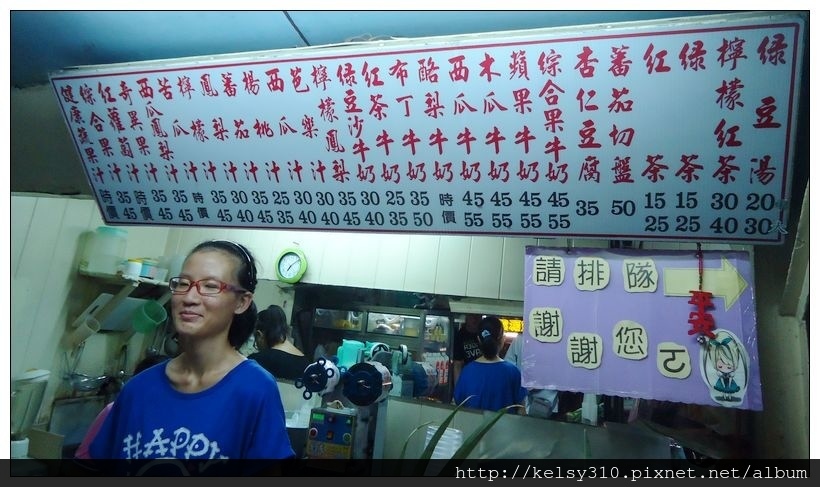 綠豆湯 20 30
檸檬紅茶 30 40
綠茶 15 25
紅茶 15 25
蕃茄切盤 50
杏仁豆腐 35
綜合果牛奶 45 55
蘋果牛奶 45 55
木瓜牛奶 45 55
西瓜牛奶 45 55
酪梨牛奶 時價
布丁牛奶 35 50
紅茶牛奶 25 35
綠豆沙牛奶 30 40
檸檬鳳梨 35 45
芭樂汁 30 40
西瓜汁
楊桃汁
蕃茄汁
鳳梨汁
檸檬汁
苦瓜汁
西瓜鳳梨汁
奇異果汁
紅蘿蔔汁
綜合果汁 35 45
健康蔬果汁 時價
請排隊
謝謝您
平安
HAPPY
http://kelsy310.pixnet.net/album